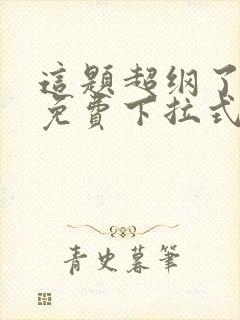 這題超纲了
免費下拉式
青史暮筆